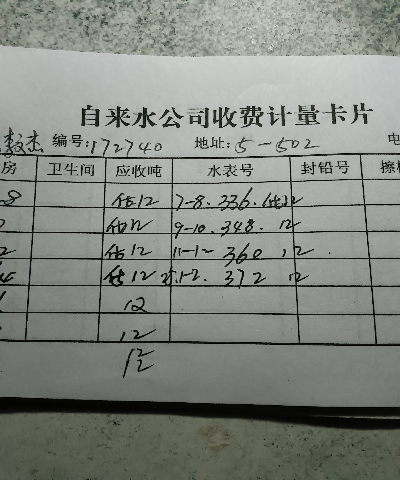 自来水公司收费计量卡片
编号:172740 地址:5-502 电
房 卫生间 应收吨 水表号 封铅号 擦
8 估12 7-8. 336. 估12
估12 9-10. 348. 12
2 估12 11-12 360 12
估12 1-2. 372 12
12
12
12